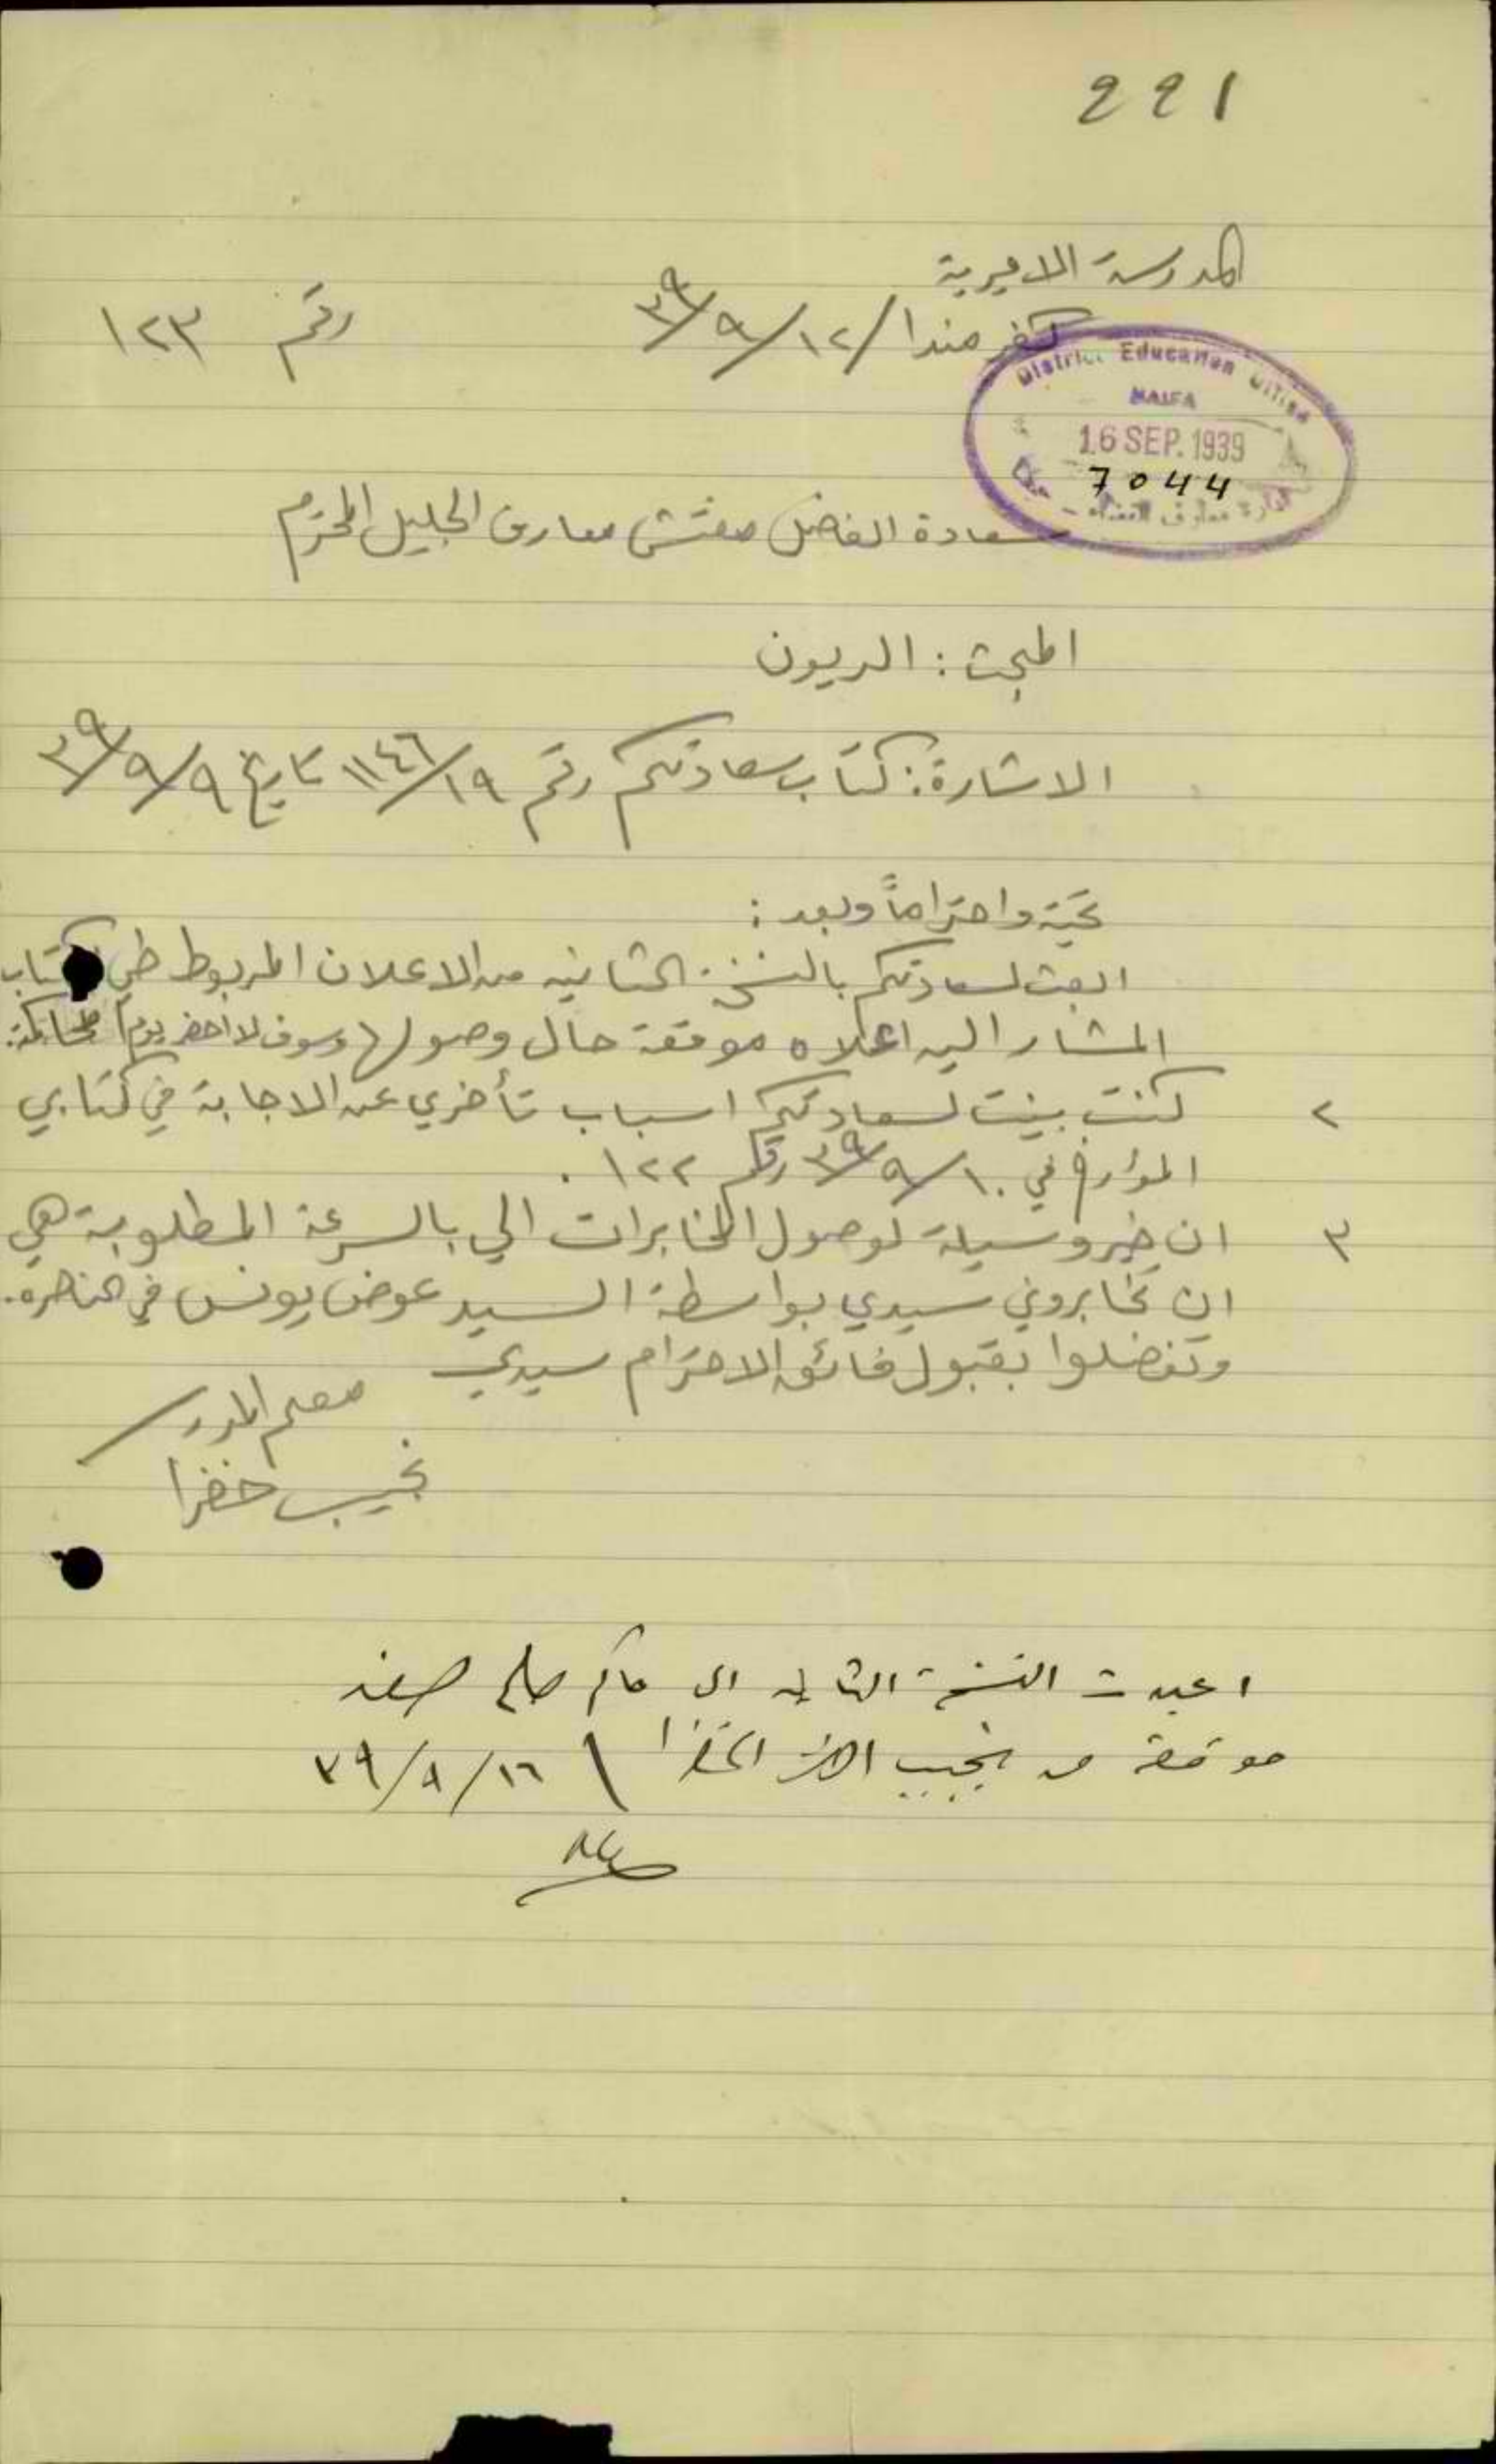 221
المدرسة الاميرية
كفر مندا / ١٢/٩/٣٩ رقم ١٢٣
District Education Office
HAIFA
16 SEP. 1939
7044
ادارة معارف القضاء -
سعادة الفاضل مفتش معارف الجليل المحترم
المبحث : الديون
الاشارة : كتاب سعادتكم رقم ١١٤٦/١٩ تاريخ ٩/٩/٣٩
تحية واحتراماً وبعد :
ابعث لسعادتكم بالنسخة الثانيه من الاعلان المربوط طي كتاب
المشار اليه اعلاه موقعة حال وصولها وسوف لا احضر يوم المحاكمة.
٢ كنت بينت لسعادتكم اسباب تأخري عن الاجابة في كتابي
المؤرخ في ١٠/٩/٣٩ رقم ١٢٢ .
٣ ان خير وسيلة لوصول المخابرات الي بالسرعة المطلوبة هي
ان تخابروني سيدي بواسطة السيد عوض يونس في الناصره.
وتفضلوا بقبول فائق الاحترام سيدي
معلم المدرسة
نجيب خضرا
اعيدت النسخة الثانيه الى حاكم صلح صفد
موقعة من نجيب الخضرا \ ١٦/٩/٣٩